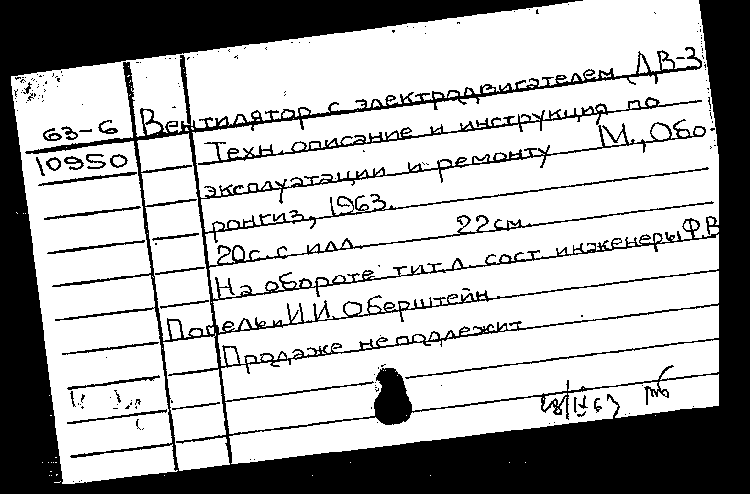 63-6 Вентилятор с электродвигателем ДВ-3
10950 Техн. описание и инструкция по
эксплуатации и ремонту М., Обо-
ронгиз, 1963.
20с. с илл. 22см.
На обороте тит. л. сост. инженеры Ф.В
и И.И. Оберштейн.
Продаже не подлежит